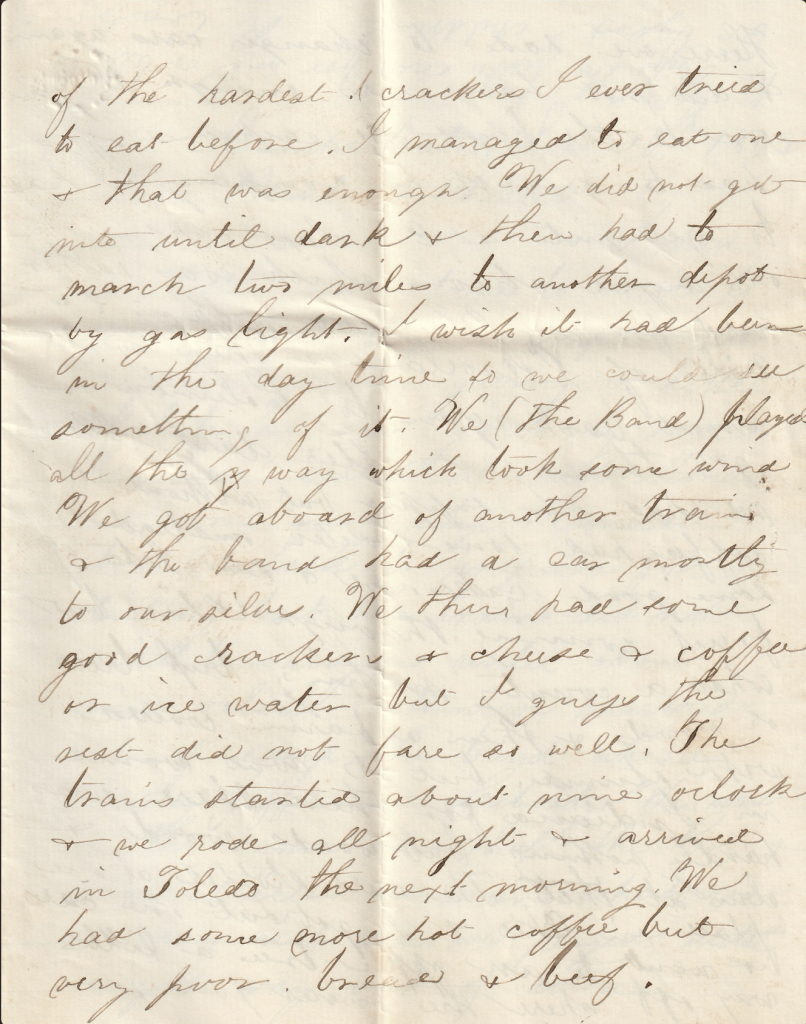 of the hardest crackers I ever tried
to eat before. I managed to eat one
& that was enough. We did not get
into until dark & then had to
march two miles to another depot
by gas light. I wish it had been
in the day time so we could see
something of it. We (the Band) played
all the way which took some wind
We got aboard of another train
& the band had a car mostly
to our selves. We then had some
good crackers & cheese & coffee
or ice water but I guess the
rest did not fare so well. The
trains started about nine oclock
& we rode all night & arrived
in Toledo the next morning. We
had some more hot coffee but
very poor bread & beef.